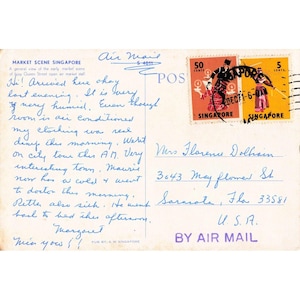 Air Mail
MARKET SCENE SINGAPORE
S 4811
A general view of the early market scene
Hi! Arrived here okay
last evening. It is very
very humid. Even though
room is air conditioned
my clothing was real
damp this morning. Went
on city tour this A.M. Very
interesting town. Maurie
now has a cold & went
to doctor this morning.
Retta also sick. He went
back to bed this afternoon.
Margaret
Miss you!!
POS
50
CENTS
SINGAPORE
5
CENTS
SINGAPORE
SINGAPORE
Mrs Florence Dolheim
3043 Mayflower St
Sarasota, Fla 33581
U.S.A.
BY AIR MAIL